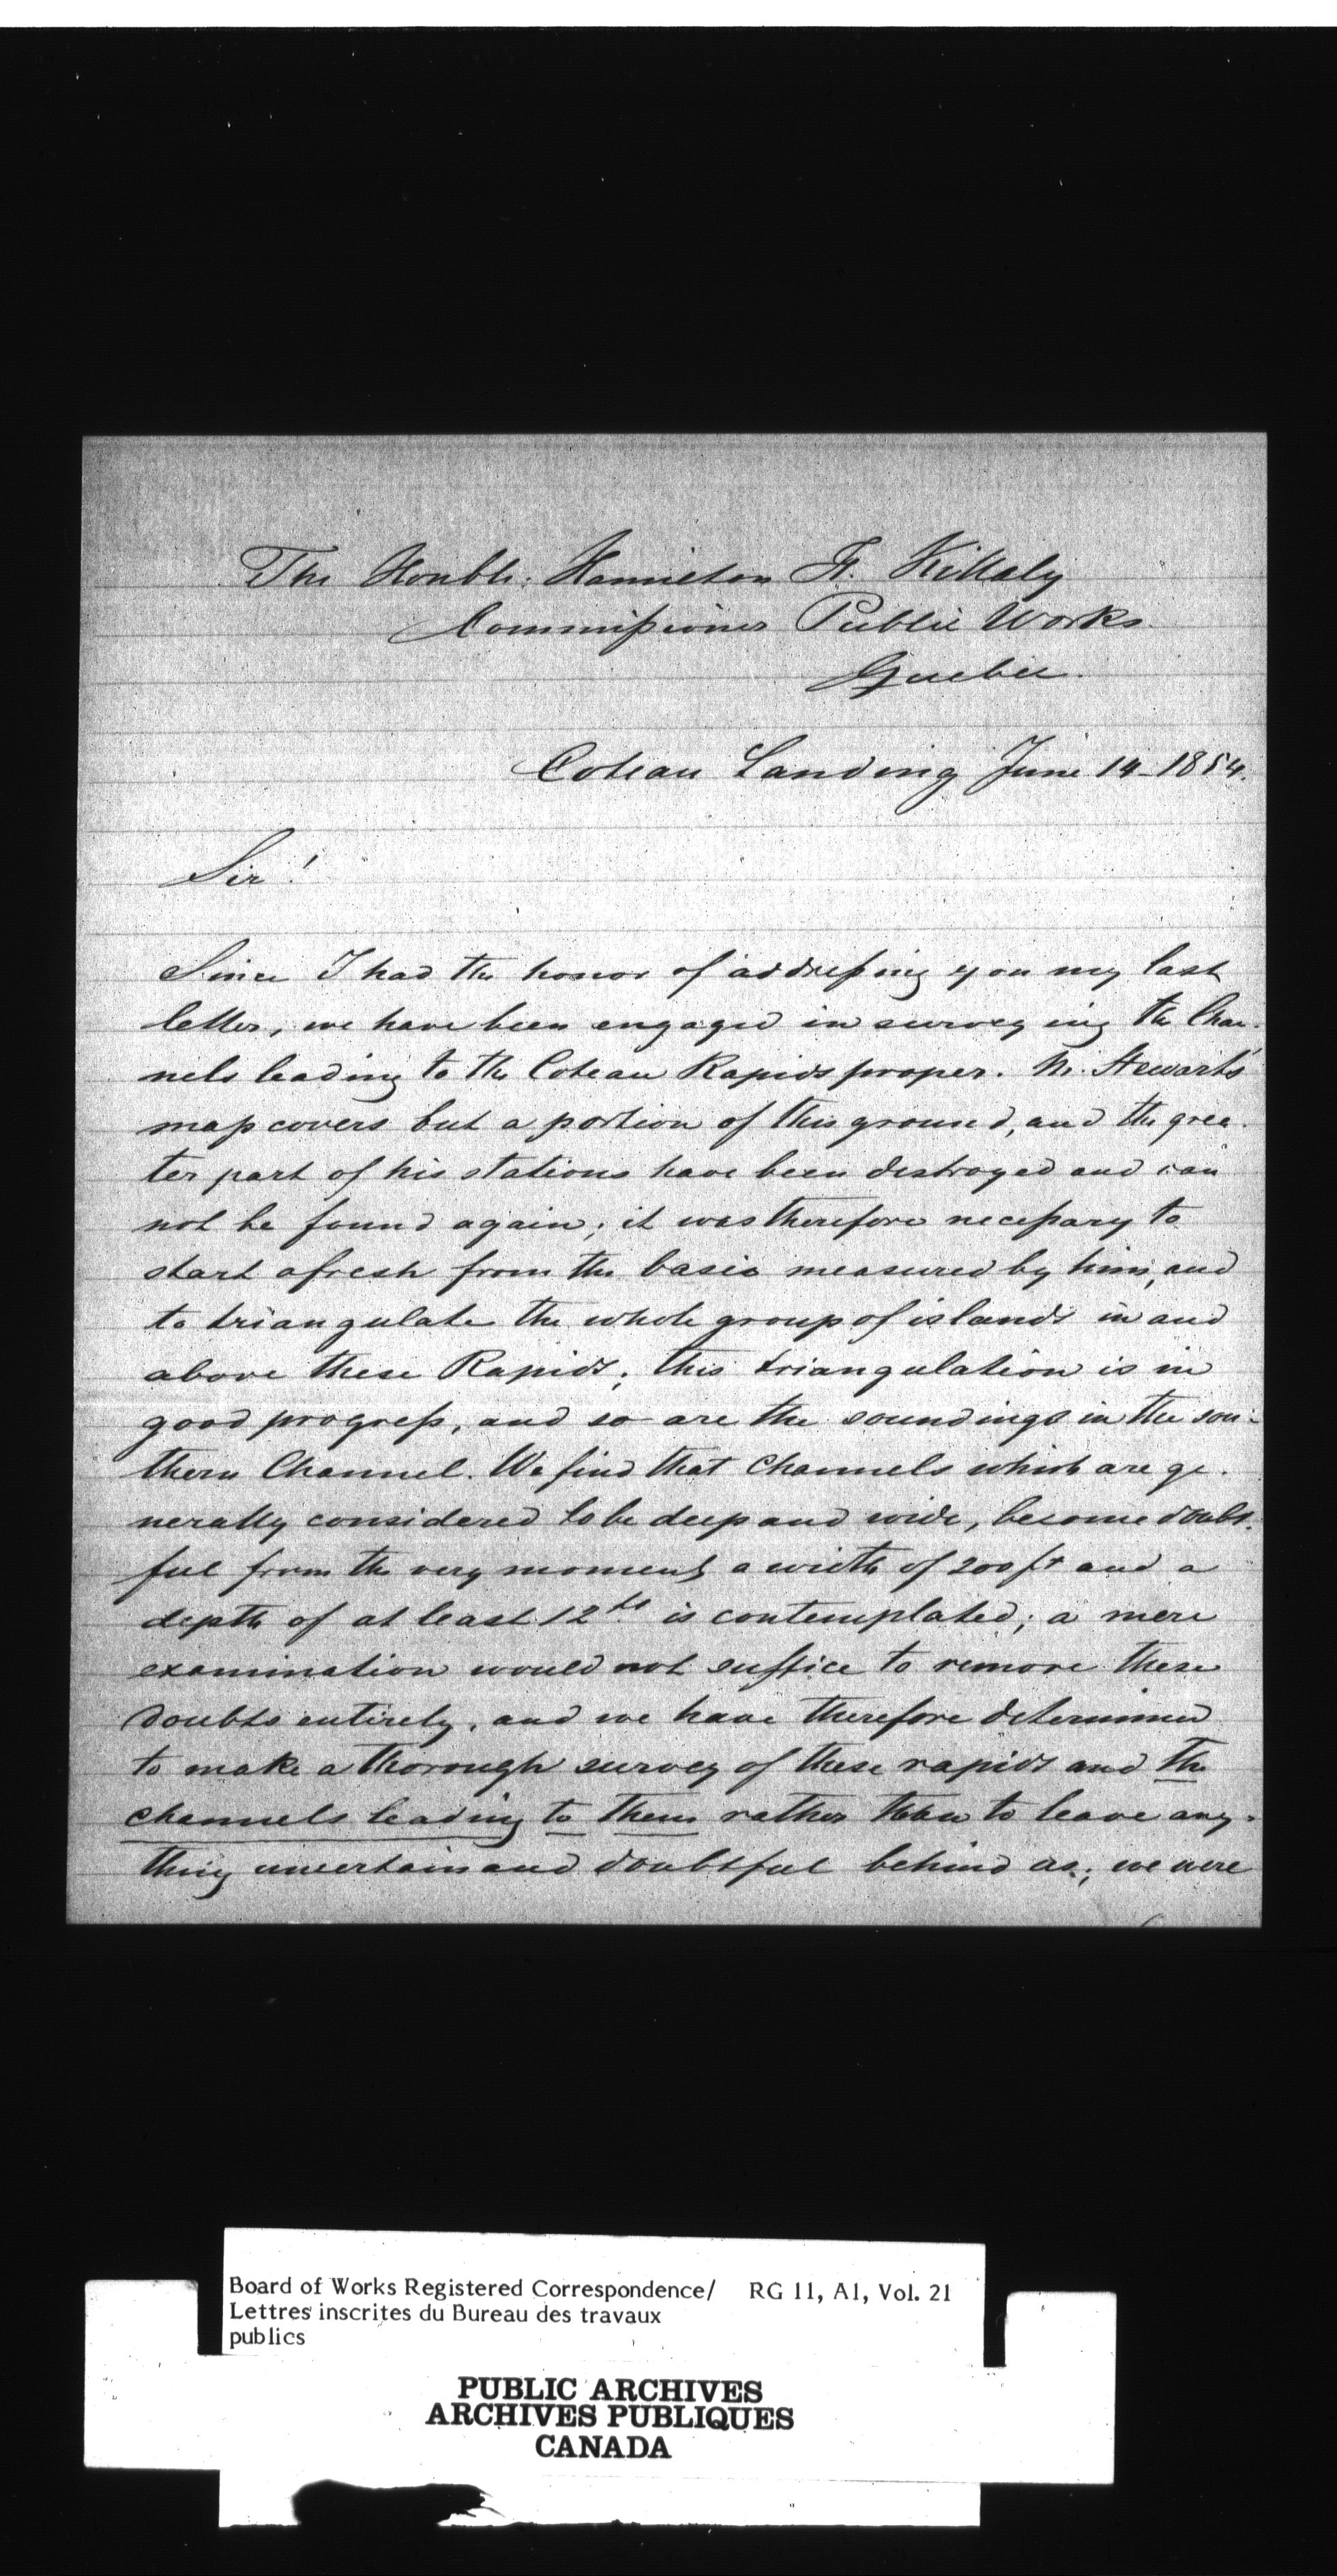 The Honble: Hamilton H. Killaly
Commissioner Public Works
Quebec.
Coteau Landing June 14 - 1854.
Sir!
Since I had the honor of addressing you my last
letter, we have been engaged in surveying the Chan-
nels leading to the Coteau Rapids proper. Mr. Stewart's
map covers but a portion of this ground, and the grea-
ter part of his stations have been destroyed and can
not be found again; it was therefore necessary to
start afresh from the basis measured by him, and
to triangulate the whole group of islands in and
above these Rapids; this triangulation is in
good progress, and so are the soundings in the sou-
thern Channel. We find that Channels which are ge-
nerally considered to be deep and wide, become doubt-
ful from the very moment a width of 200 ft and a
depth of at least 12 ft is contemplated; a mere
examination would not suffice to remove these
doubts entirely, and we have therefore determined
to make a thorough survey of these rapids and the
channels leading to them rather than to leave any-
thing uncertain and doubtful behind us; we were
Board of Works Registered Correspondence/ RG 11, A1, Vol. 21
Lettres inscrites du Bureau des travaux
publics
PUBLIC ARCHIVES
ARCHIVES PUBLIQUES
CANADA